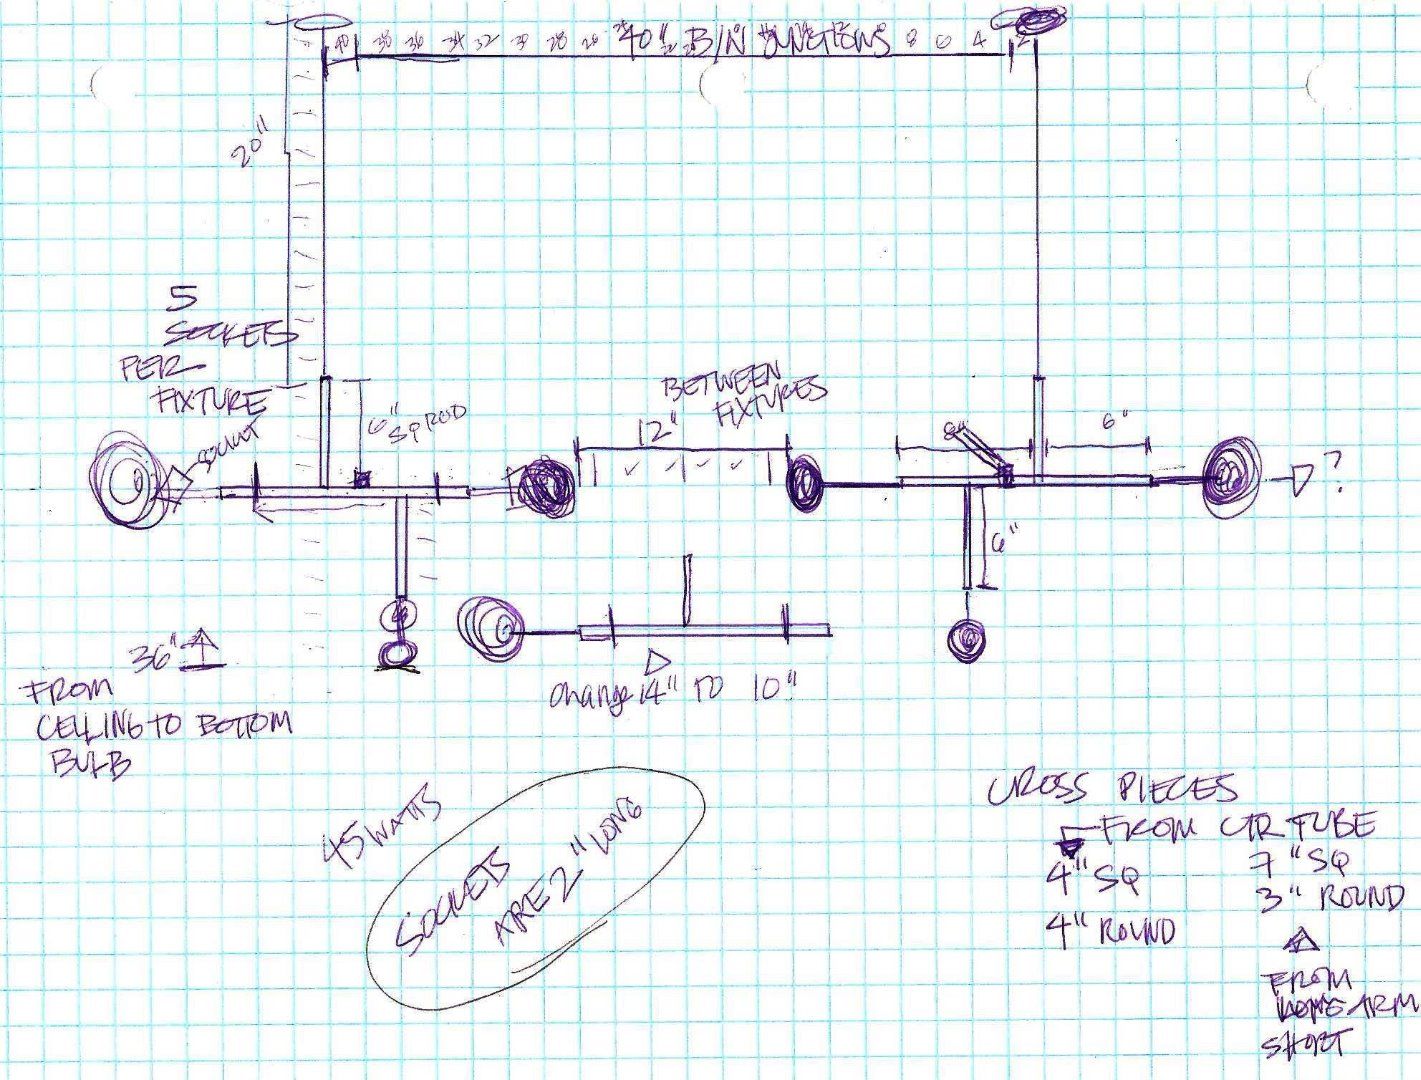 40 38 36 34 32 30 28 26 40" B/N JUNCTIONS 8 6 4 2
20"
5
SOCKETS
PER
FIXTURE
SOCKET
6"
SQ ROD
BETWEEN
FIXTURES
12"
8"
6"
?
6"
36"
FROM
CEILING TO BOTTOM
BULB
Change 14" TO 10"
45 WATTS
SOCKETS
ARE 2" LONG
CROSS PIECES
FROM CTR TUBE
4" SQ
4" ROUND
7" SQ
3" ROUND
FROM
ARM
SHORT